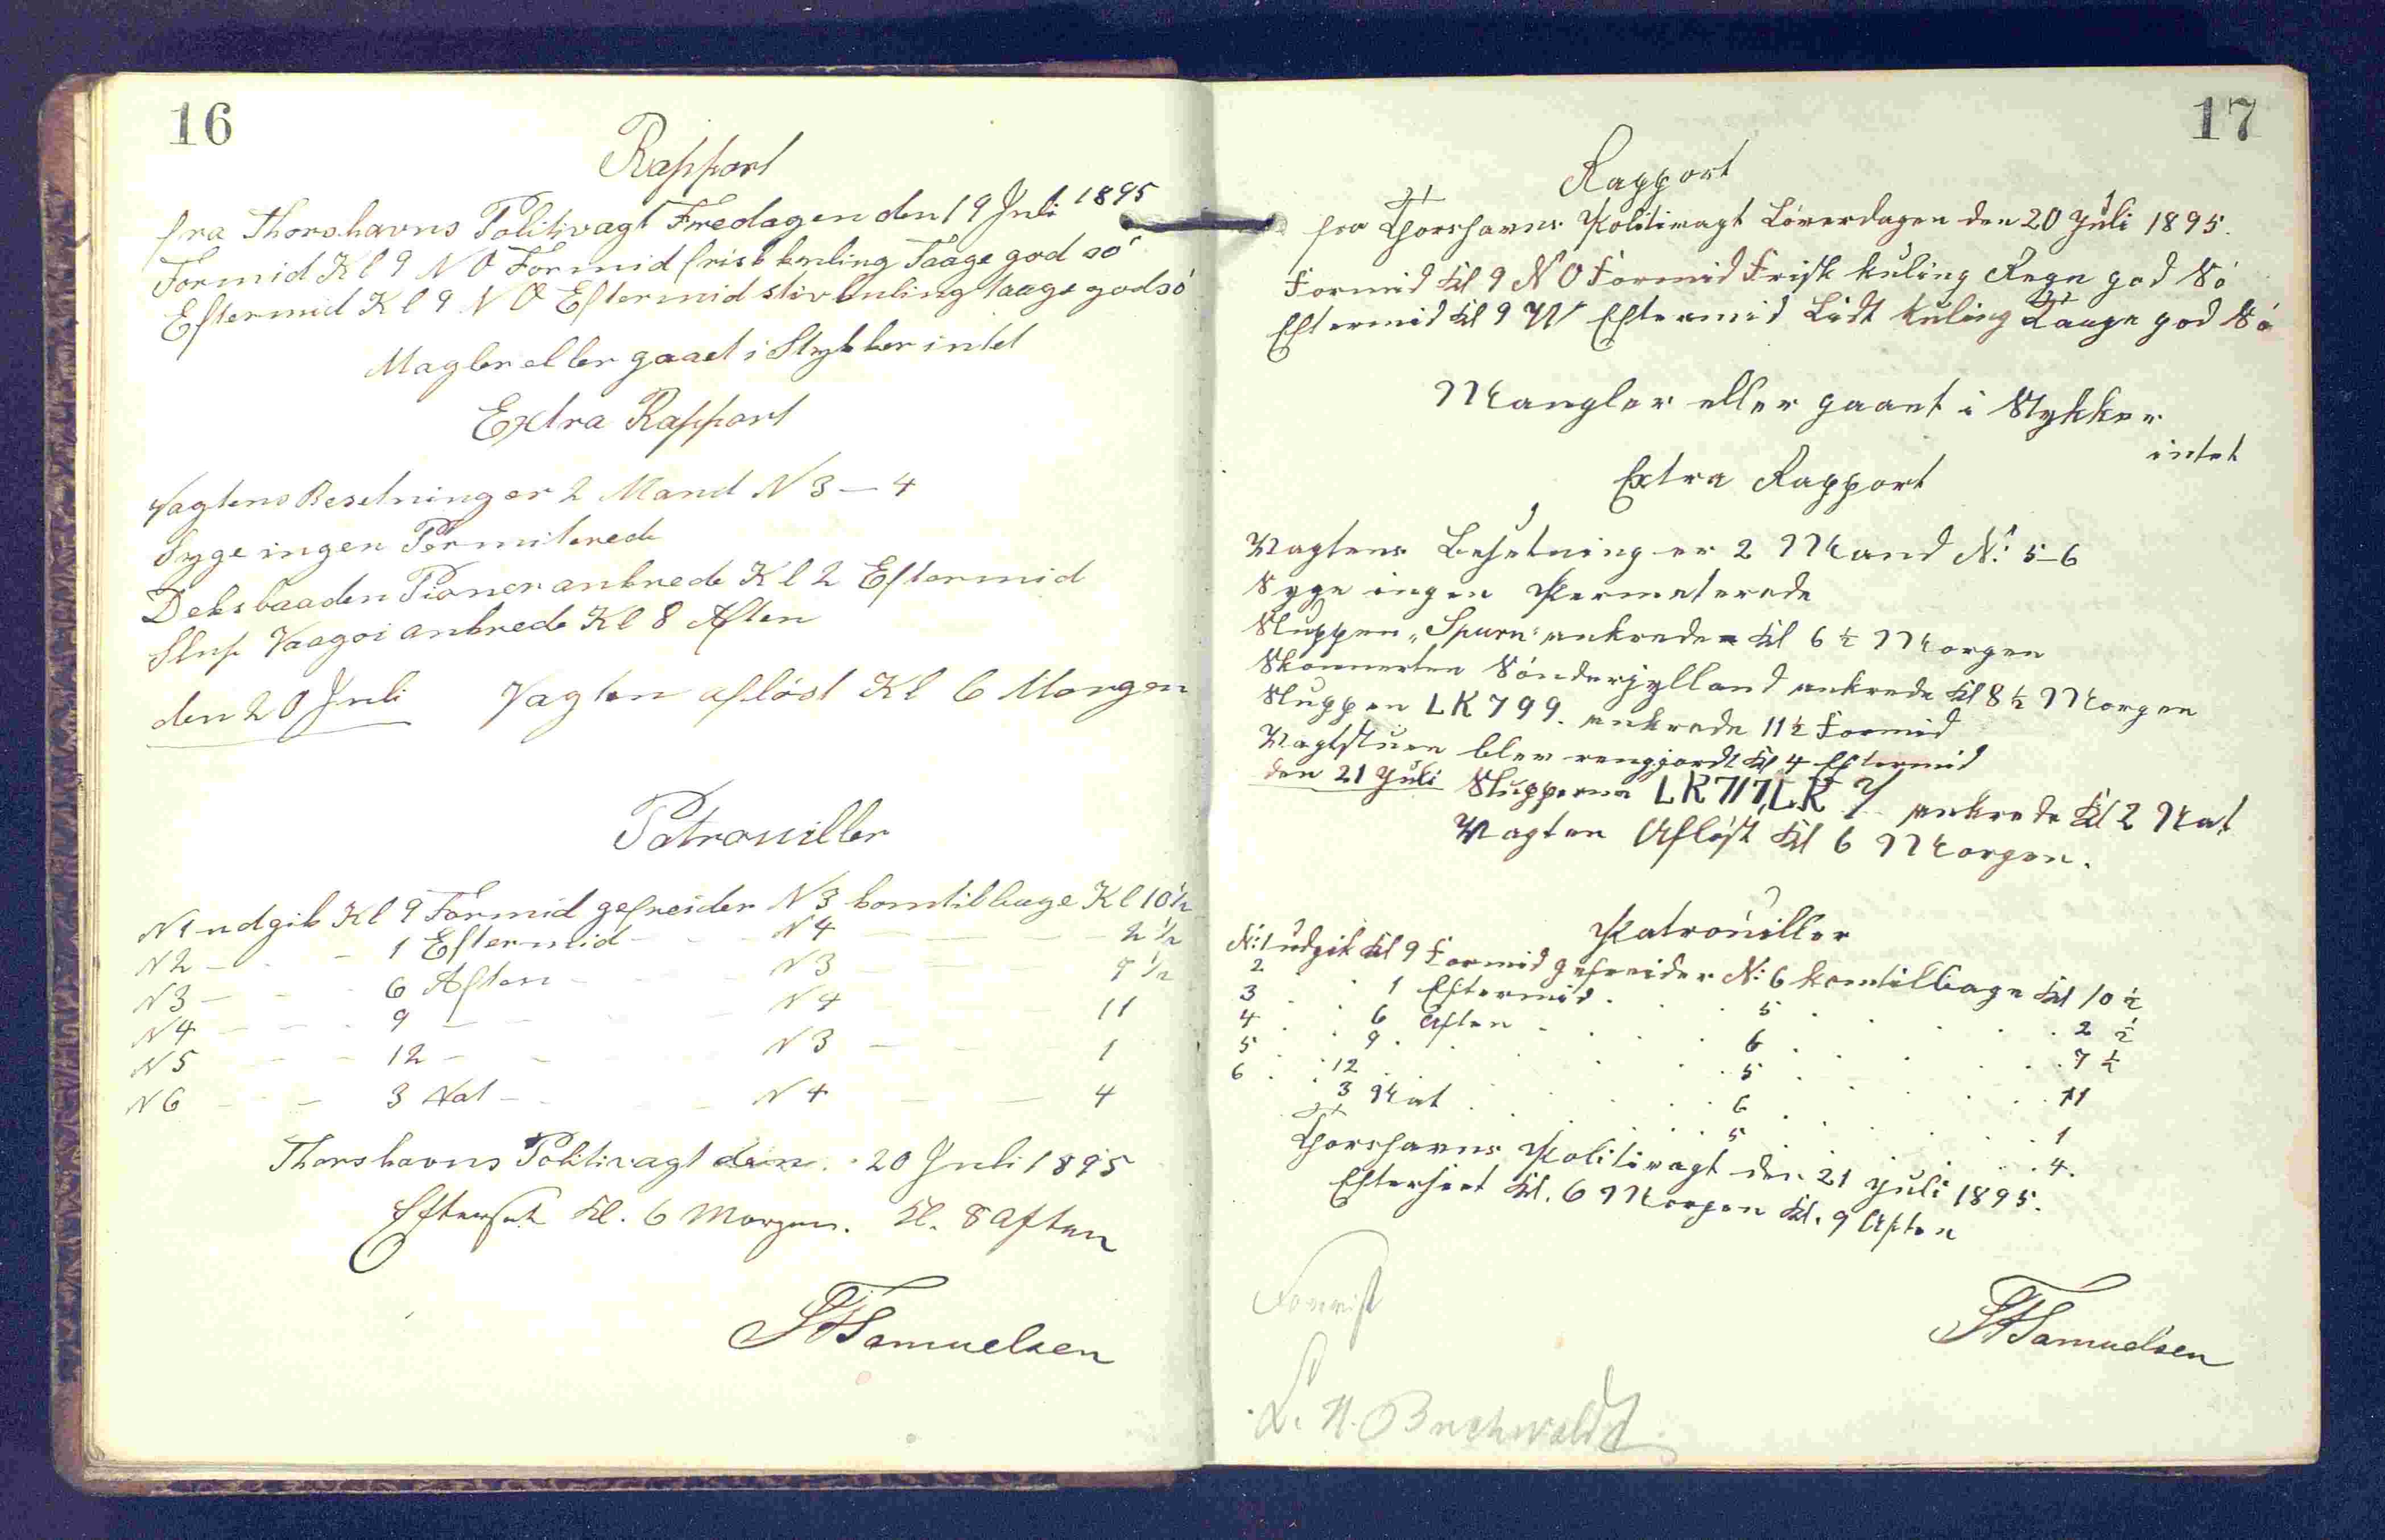 16
Rapport
fra Thorshavns Politivagt Fredagen den 19 Juli 1895
Formid Kl 9 N O Formid frisk kuling Taage god só
Eftermid Kl 9 N O Eftermid stiv kuling taage god só
Magler eller gaaet i Stykker intet
Extra Rapport
Vagtens Besetning er 2 Mand N 3 — 4
Syge ingen Permiterede
Deksbaaden Pioner ankrede Kl 2 Eftermid
Slup Vaagoi ankrede Kl 8 Aften
den 20 Juli Vagten aflóst Kl 6 Morgen
Patrouiller
N1 udgik Kl 9 Formid gefreider N3 kom tilbage Kl 10 1/2
N2 — - - 1 Eftermid - - - N4 — — — 2 1/2
N3 — - - 6 Aften - - - N3 — — — 7 1/2
N4 — — - 9 — — — N4 — — — 11
N5 — — 12 — - — N3 — — — 1
N6 — — — 3 Nat — - — N4 — — 4
Thorshavns Politivagt den 20 Juli 1895
Efterset Kl. 6 Morgen. Kl. 8 Aften
Samuelsen
17
Rapport
fra Thorshavns Politivagt Lóverdagen den 20 Juli 1895.
Formid Kl 9 N O Formid Frisk kuling Regn god Só
Eftermid Kl 9 W Eftermid Lidt kuling Taage god Só
Mangler eller gaaet i Stykker
intet
Extra Rapport
Vagtens Besetning er 2 Mand N: 5–6
Syge ingen Permeterede
Sluppen „Spurn" ankrede Kl 6 1/2 Morgen
Skonnerten Sónderjylland ankrede Kl 8 1/2 Morgen
Sluppen LK 799. ankrede 11 1/2 Formid
Vagtstuen blev rengjordt Kl 4 Eftermid
den 21 Juli Slupperne LK 717, LK ? ankrede Kl 2 Nat
Vagten Aflóst Kl 6 Morgen.
Patrouiller
N: 1 udgik Kl 9 Formid gefreider N: 6 kom tilbage Kl 10 1/2
2 . . 1 Eftermid . . . 5 . . . 2 1/2
3 . . 6 Aften . . . 6 . . . 7 1/2
4 . . 9 . . . 5 . . . 11
5 . . 12 . . . 6 . . . 1
6 . . 3 Nat . . . 5 . . . 4.
Thorshavns Politivagt den 21 Juli 1895.
Efterseet Kl. 6 Morgen Kl. 9 Aften
Samuelsen
Forevist
Buchwaldt